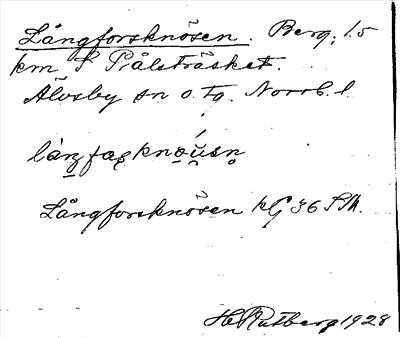 Långforsknösen. Berg; 1.5
km S Pålsträsket
Älvsby sn o. tg. Norrb. l.
Långforsknösen kG 36 Sth.
H. Rutberg 1928